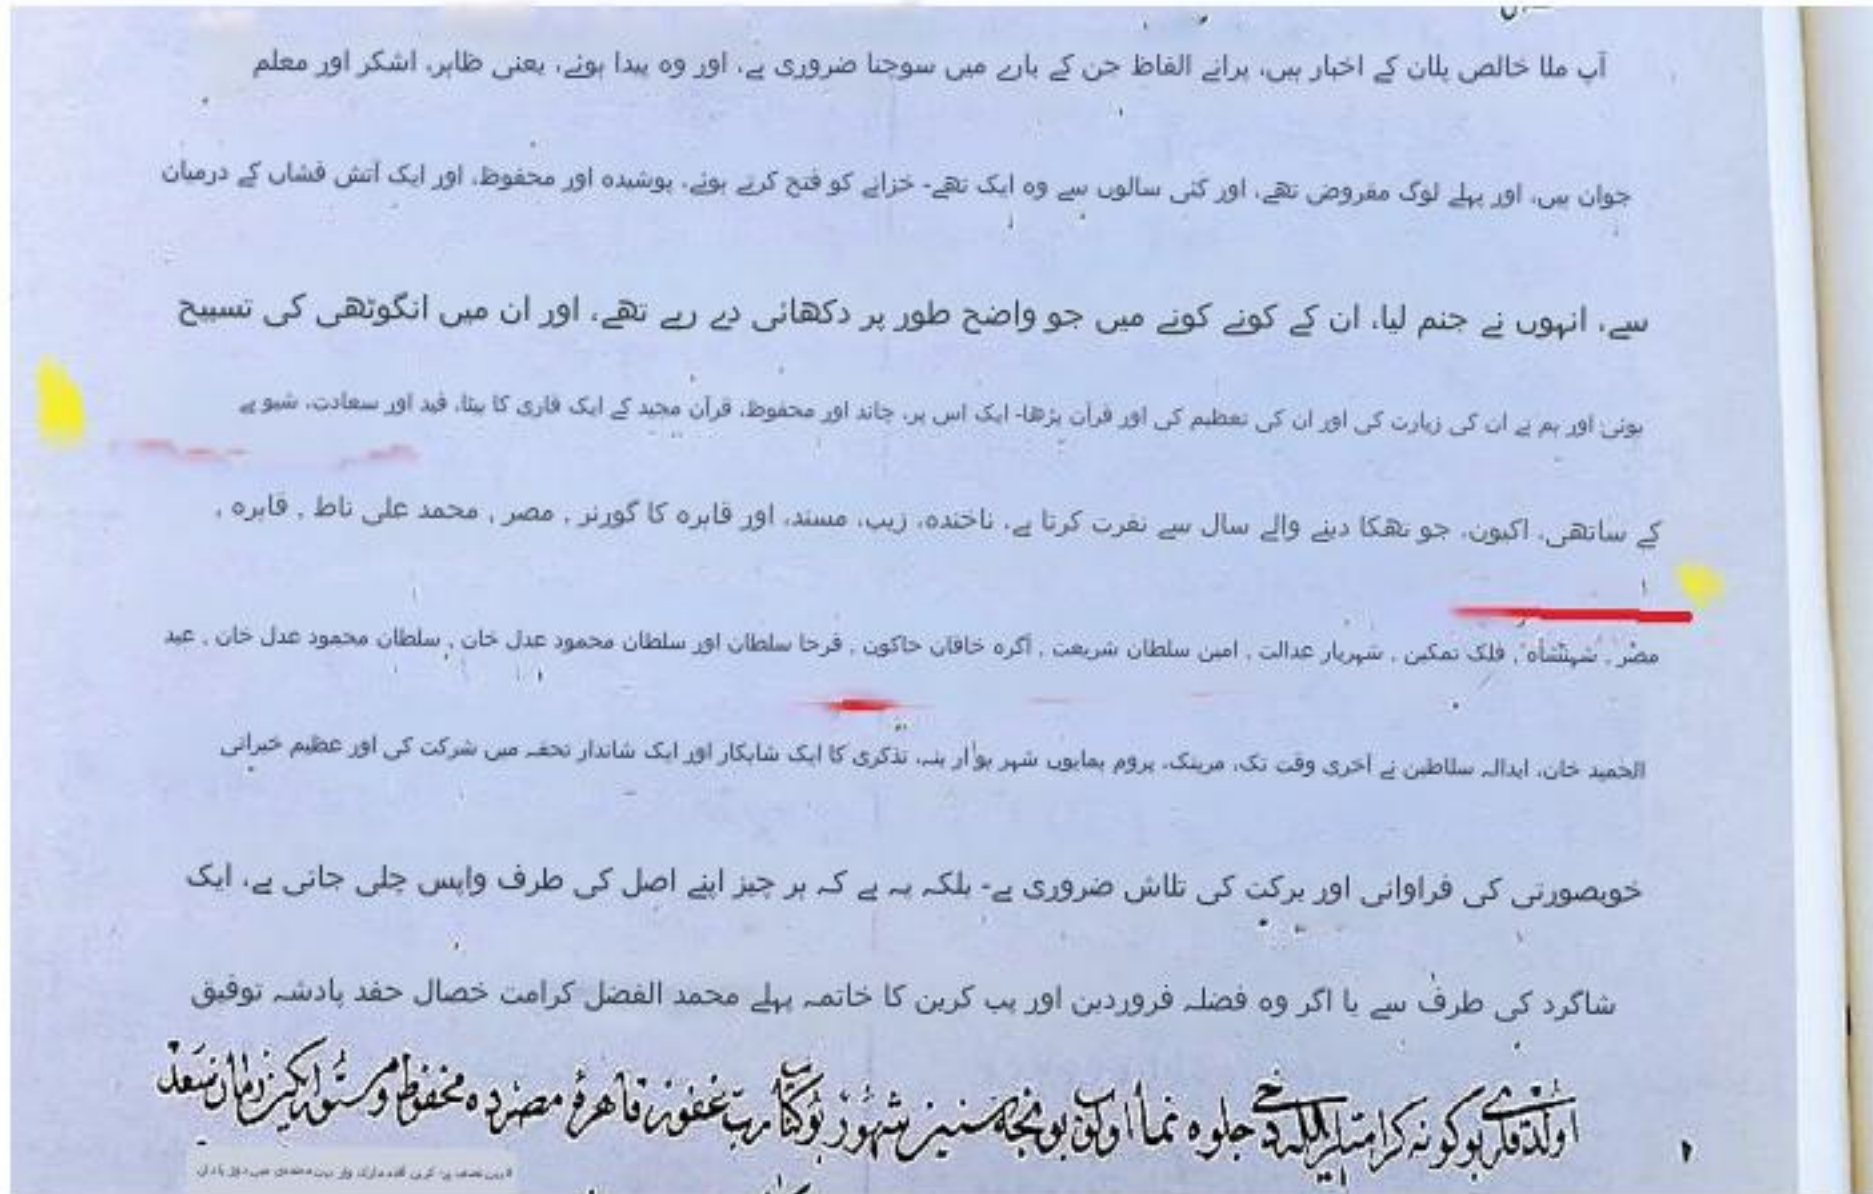 آپ ملا خالص پلان کے اخبار ہیں، پرانے الفاظ جن کے بارے میں سوچنا ضروری ہے، اور وہ پیدا ہوئے، یعنی ظاہر، اشکر اور معلم
جوان ہیں، اور پہلے لوگ مقروض تھے، اور کئی سالوں سے وہ ایک تھے- خزانے کو فتح کرتے ہوئے، پوشیدہ اور محفوظ، اور ایک آتش فشاں کے درمیان
سے، انہوں نے جنم لیا، ان کے کونے کونے میں جو واضح طور پر دکھائی دے رہے تھے، اور ان میں انگوٹھی کی تسبیح
ہوئی اور ہم نے ان کی زیارت کی اور ان کی تعظیم کی اور قرآن پڑھا- ایک اس پر، چاند اور محفوظ، قرآن مجید کے ایک قاری کا بیٹا، قید اور سعادت، شبو ہے
کے ساتھی، اکیون، جو تھکا دینے والے سال سے نفرت کرتا ہے، ناخندہ، زیب، مسند، اور قاہرہ کا گورنر , مصر , محمد علی ناط , قاہرہ ,
مصر , شہنشاہ , فلک تمکین , شہریار عدالت , امین سلطان شریعت , آگرہ خاقان حاکون , فرحا سلطان اور سلطان محمود عدل خان , سلطان محمود عدل خان , عبد
الحمید خان، ابدالہ سلاطین نے آخری وقت تک، مرینک، پروم ہمایوں شہر ہو آر ہنہ، تذکری کا ایک شاہکار اور ایک شاندار تحفہ میں شرکت کی اور عظیم خیراتی
خوبصورتی کی فراوانی اور برکت کی تلاش ضروری ہے- بلکہ یہ ہے کہ ہر چیز اپنے اصل کی طرف واپس چلی جاتی ہے، ایک
شاگرد کی طرف سے یا اگر وہ فضلہ فروردین اور پب کرین کا خاتمہ پہلے محمد الفضل کرامت خصال حفد پادشہ توفیق
جلوه نما شهور رب غفور قاهرۀ مصرده محفوظ